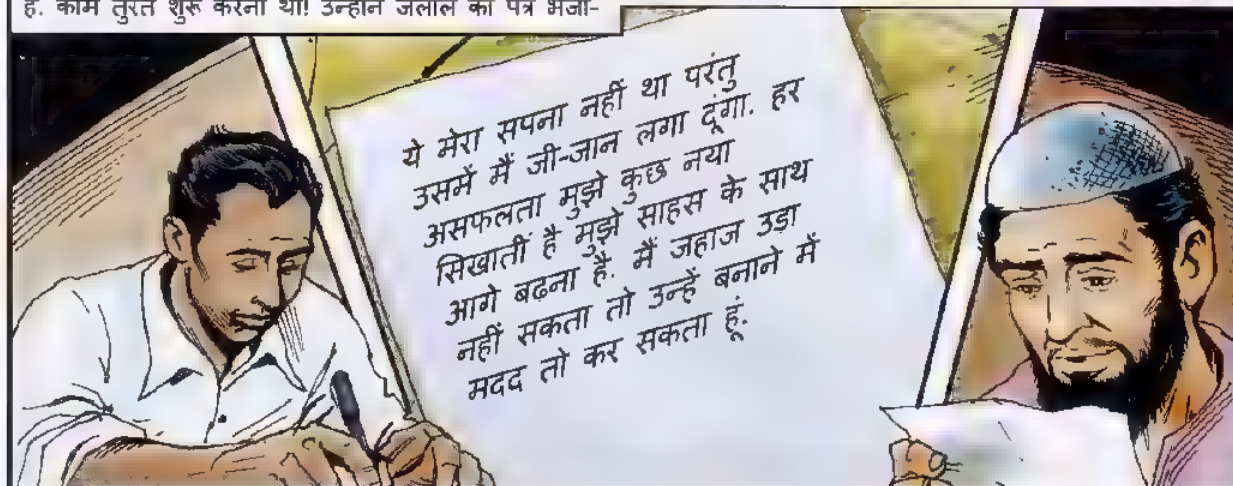 है. काम तुरंत शुरू करना था! उन्होंने जलाल को पत्र भेजा-
ये मेरा सपना नहीं था परंतु
उसमें मैं जी-जान लगा दूंगा. हर
असफलता मुझे कुछ नया
सिखातीं है मुझे साहस के साथ
आगे बढना है. मैं जहाज उड़ा
नहीं सकता तो उन्हें बनाने में
मदद तो कर सकता हूं.